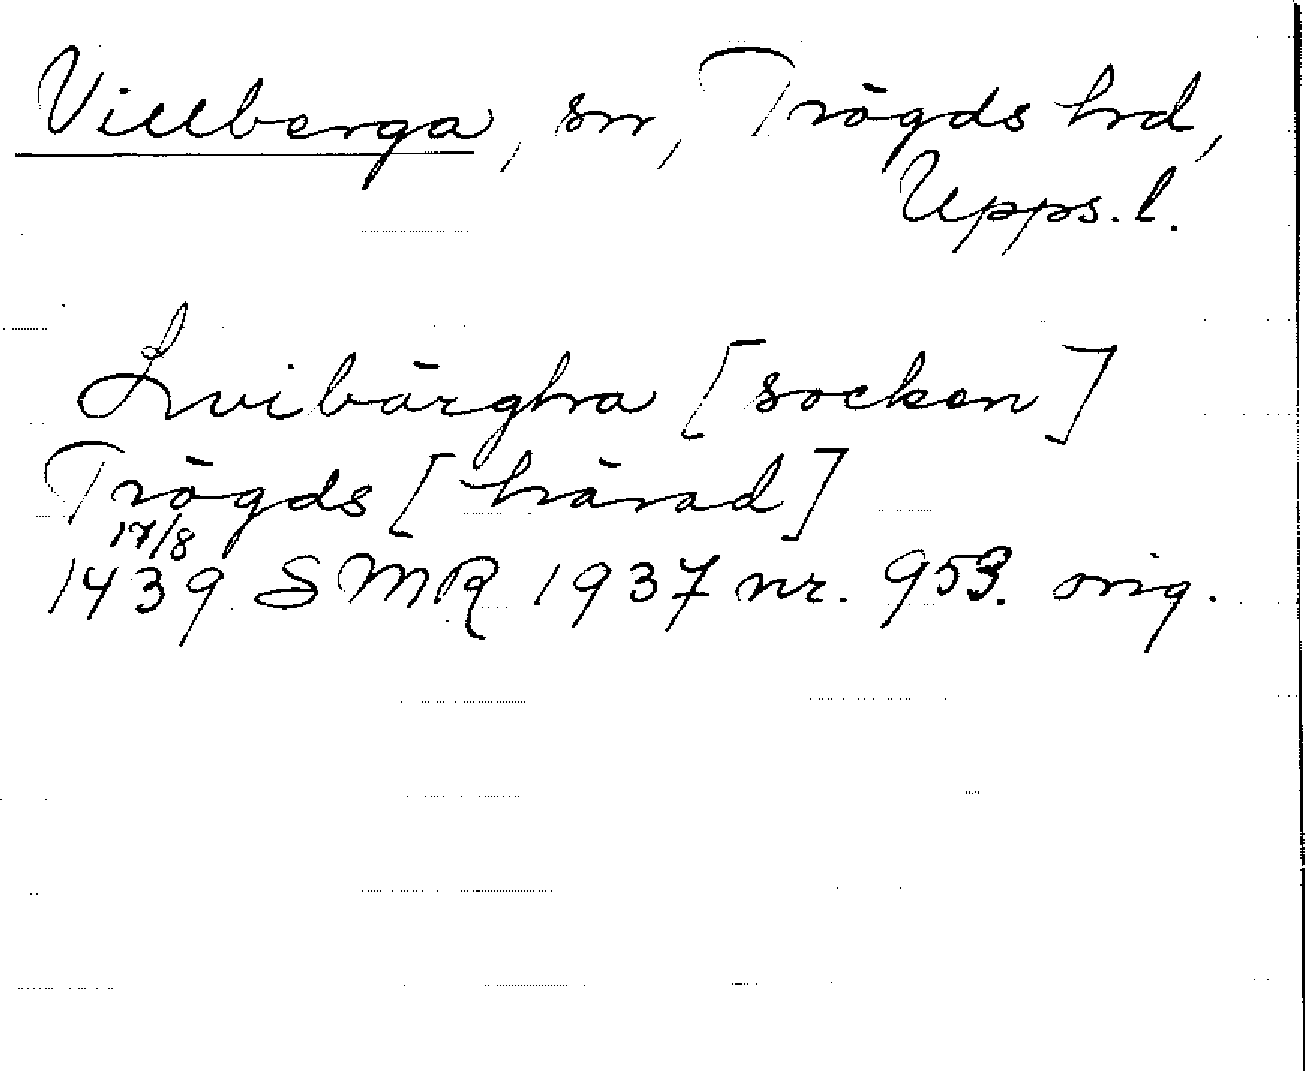 Villberga, sn, Trögds hrd,
Upps. l.
Lvibärgha [socken]
Trögds [härad]
17/8
1439 SMR 1937 nr. 953. orig.